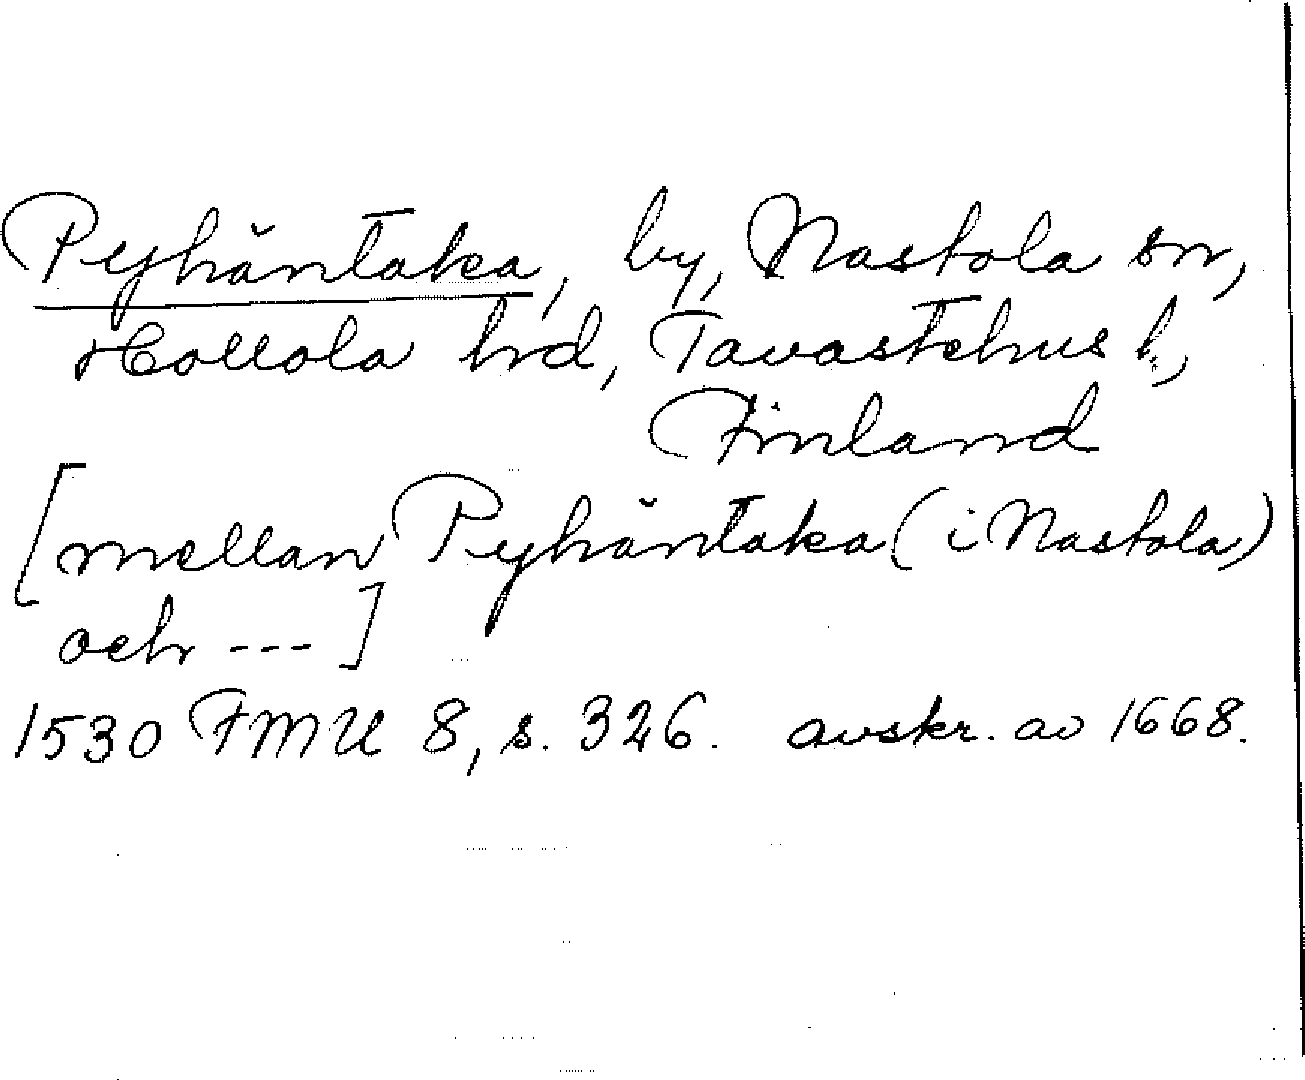 Pyhäntaka, by, Nastola sn,
Hollola hrd, Tavastehus l.,
Finland
[mellan Pyhäntaka (i Nastola)
och --- ]
1530 FMU 8, s. 326. avskr. av 1668.